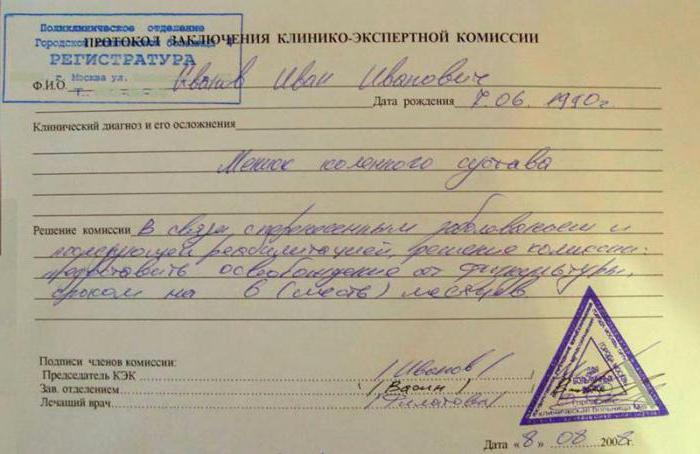 Поликлиническое отделение
Городской больницы
РЕГИСТРАТУРА
г. Москва ул.
ПРОТОКОЛ ЗАКЛЮЧЕНИЯ КЛИНИКО-ЭКСПЕРТНОЙ КОМИССИИ
Ф.И.О. Иванов Иван Иванович
Дата рождения 7.06.1990г.
Клинический диагноз и его осложнения
Мениск коленного сустава
Решение комиссии В связи с перенесенным заболеванием и
последующей реабилитацией, решение комиссии:
предоставить освобождение от физкультуры,
сроком на 6 (шесть) месяцев.
Подписи членов комиссии:
Председатель КЭК /Иванов/
Зав. отделением (Васин)
Лечащий врач /Филатова/
ДЛЯ
БОЛЬНИЧНЫХ
Городская
клиническая больница
Дата «8» 08 2008